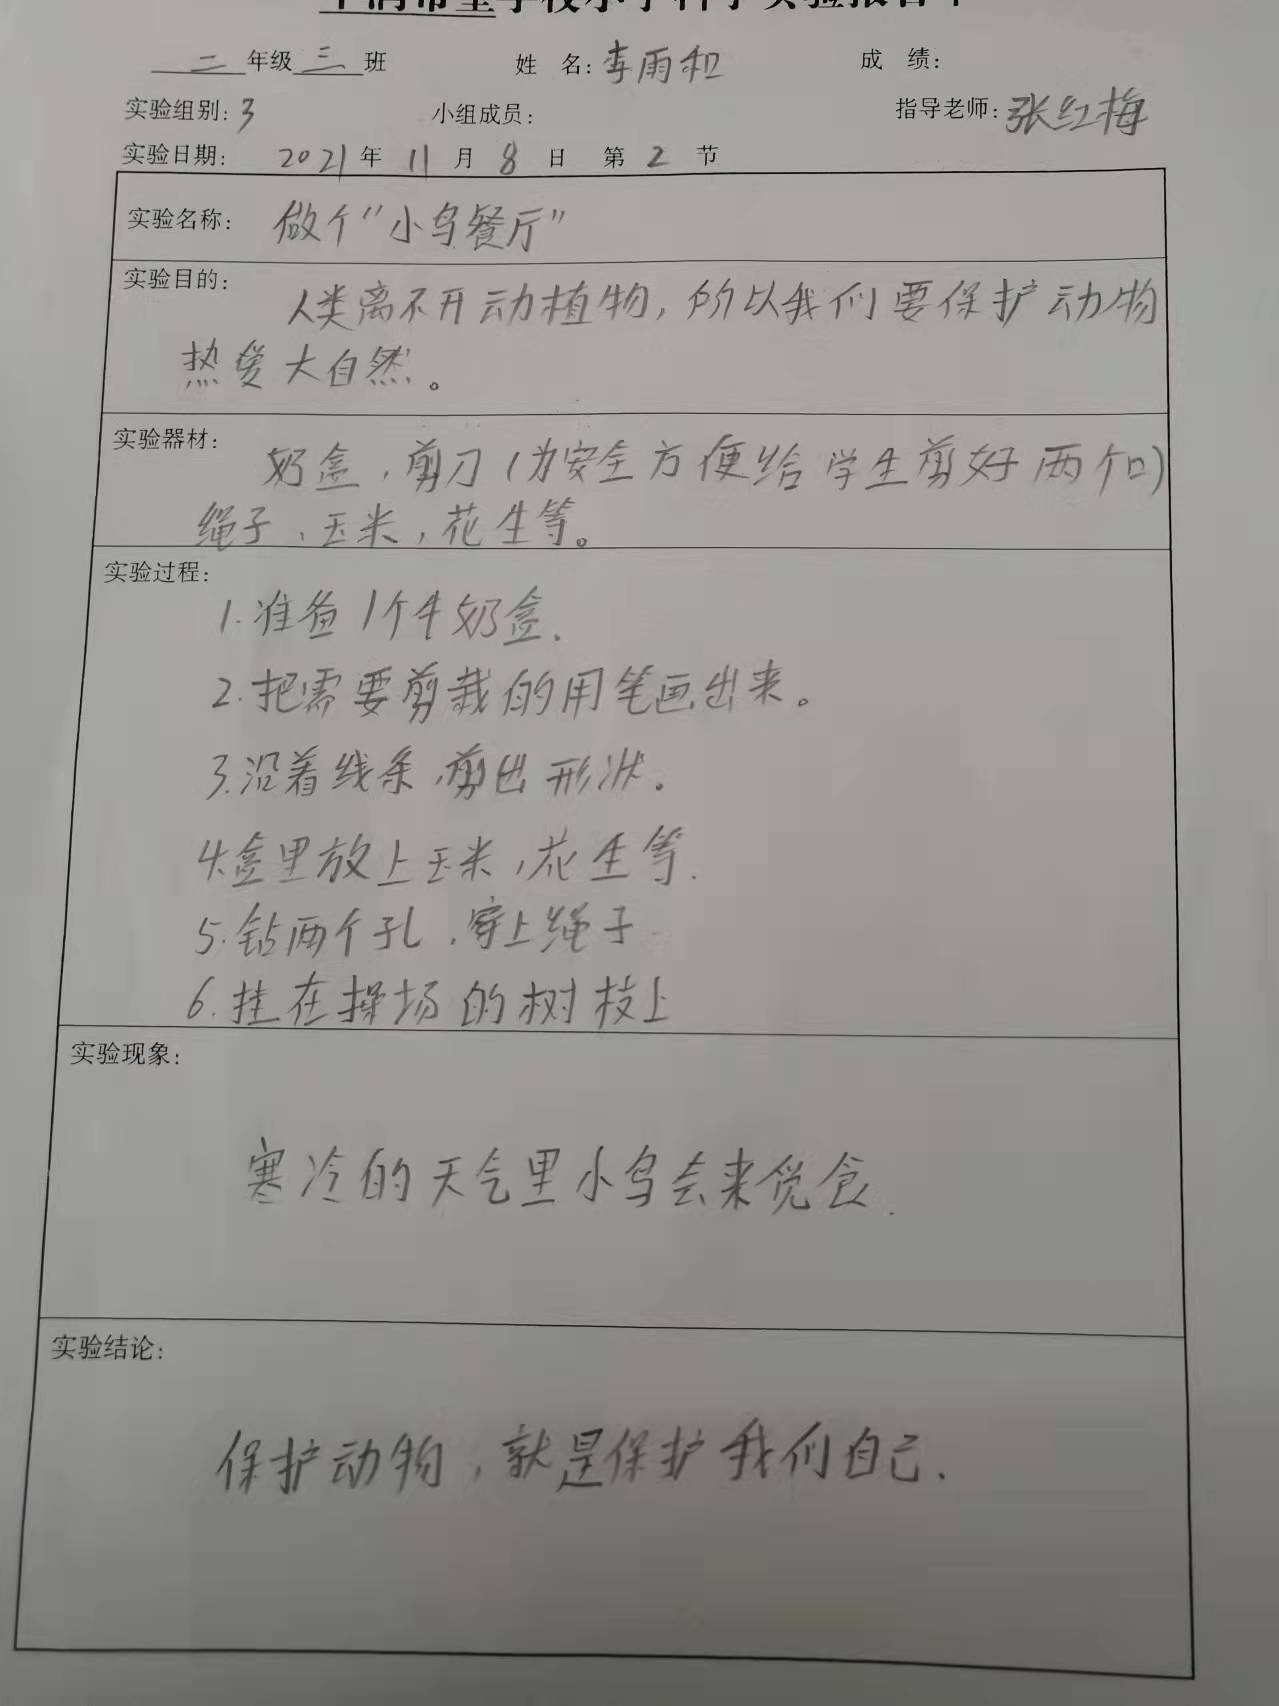 二年级三班 姓 名：李雨和 成 绩：
实验组别：3 小组成员： 指导老师：张红梅
实验日期： 2021年 11月 8日 第 2 节
实验名称： 做个“小鸟餐厅”
实验目的： 人类离不开动植物，所以我们要保护动物
热爱大自然。
实验器材： 奶盒，剪刀（为安全方便给学生剪好两个口）
绳子，玉米，花生等。
实验过程：
1.准备1个牛奶盒.
2.把需要剪裁的用笔画出来。
3.沿着线条,剪出形状。
4.盒里放上玉米,花生等.
5.钻两个孔,穿上绳子
6.挂在操场的树枝上
实验现象：
寒冷的天气里小鸟会来觅食.
实验结论：
保护动物,就是保护我们自己.